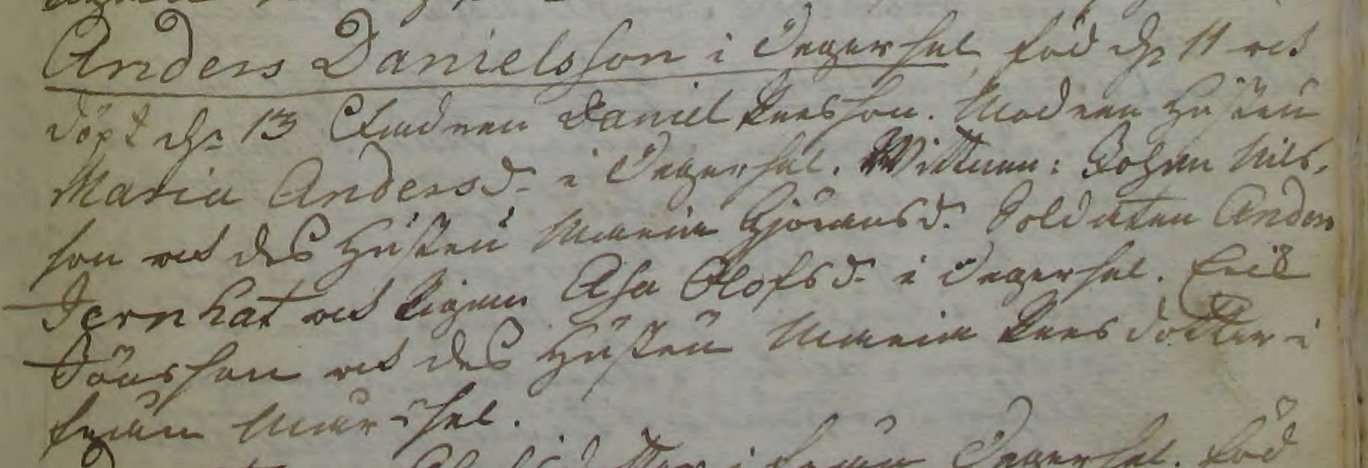 Anders Danielsson i Degersel, föd d. 11 och
döpt d. 13 Fadren Daniel Persson. Modren Hustru
Maria Andersd. i Degersel. Wittnen: Johan Nils-
son och des Hustru Maria Gjöransd. Soldaten Anders
Jernhat och Pigan Asa Olofsd. i Degersel. Erik
Jönsson och des Hustru Maria Persdotter i
sel.
i Degersel. Föd